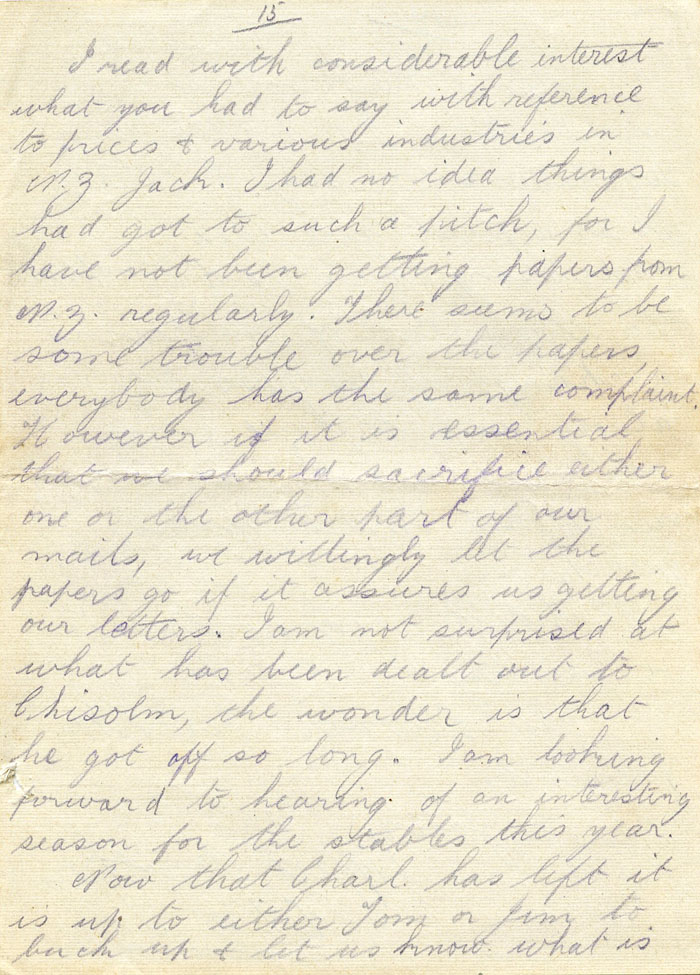 15
I read with considerable interest
what you had to say with reference
to prices & various industries in
N.Z. Jack. I had no idea things
had got to such a pitch, for I
have not been getting papers from
N.Z. regularly. There seems to be
some trouble over the papers,
everybody has the same complaint.
However if it is essential
that we should sacrifice either
one or the other part of our
mails, we willingly let the
papers go if it assures us getting
our letters. I am not surprised at
what has been dealt out to
Chisolm, the wonder is that
he got off so long. I am looking
forward to hearing of an interesting
season for the stables this year.
Now that Charl. has left it
is up to either Tom or Jim to
buck up & let us know what is